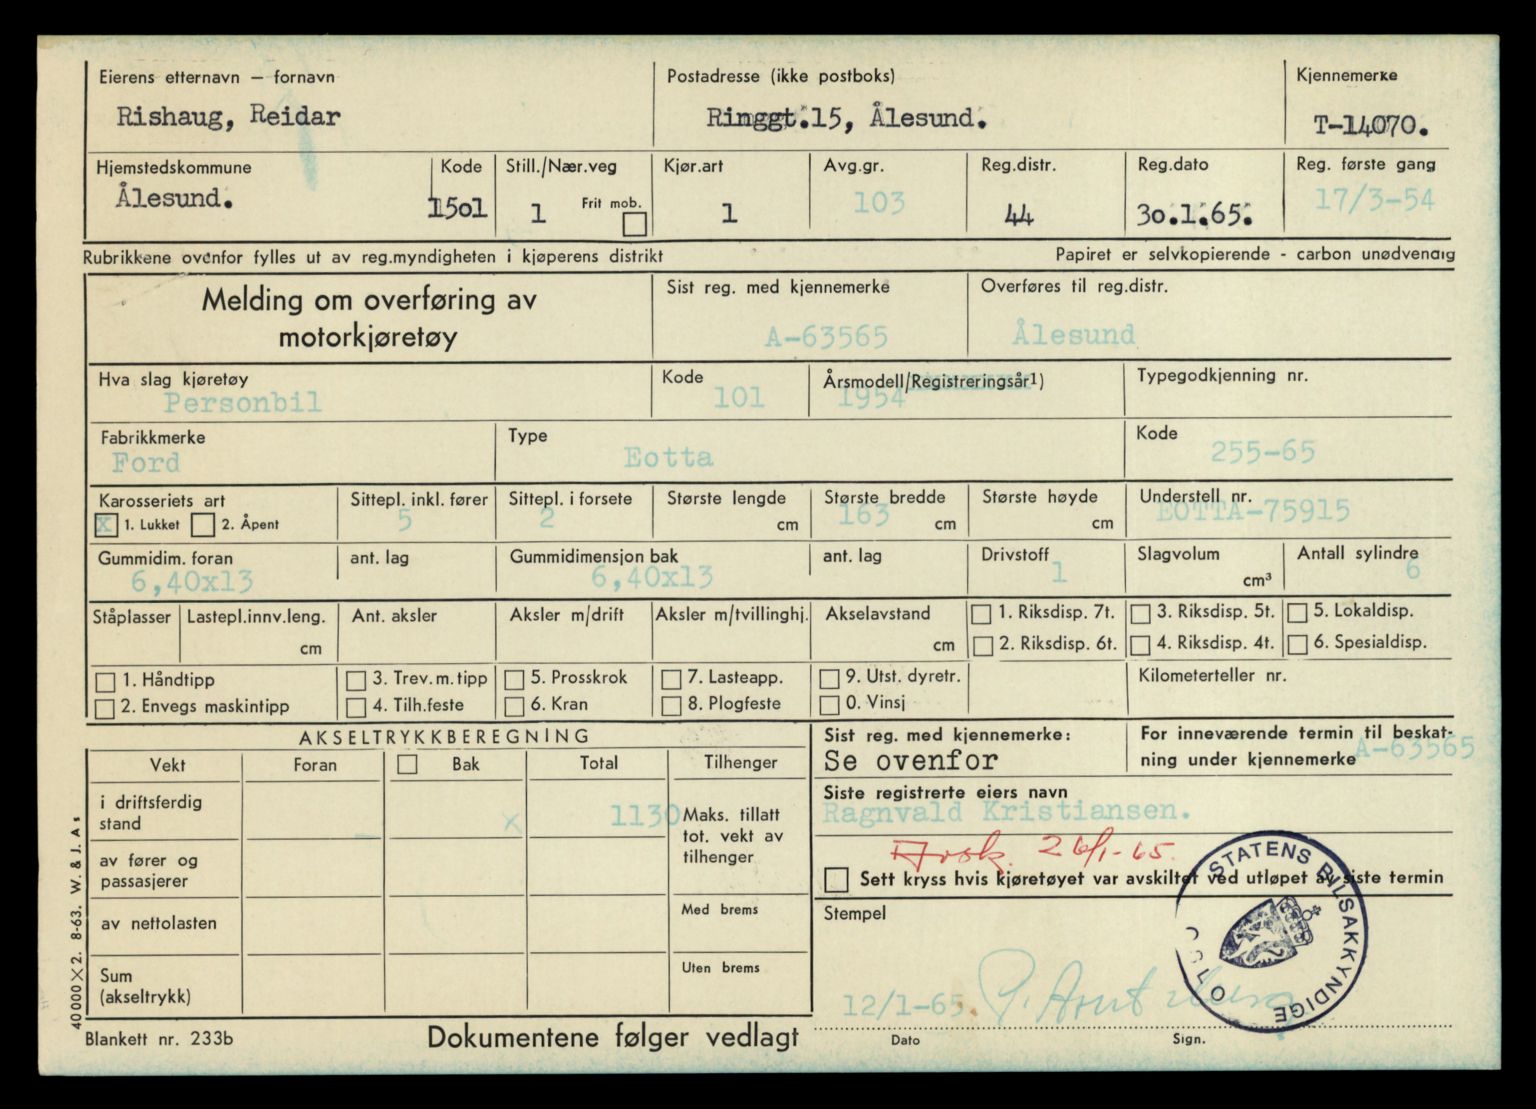 Eierens etternavn — fornavn Postadresse (ikke postboks) Kjennemerke
Rishaug, Reidar Ringgt.15, Ålesund. T-14070.
Hjemstedskommune Kode Still./Nær.veg Kjør.art Avg.gr. Reg.distr. Reg.dato Reg. første gang
Ålesund. 1501 1 Frit mob. 1 103 44 30.1.65. 17/3-54
Rubrikkene ovenfor fylles ut av reg.myndigheten i kjøperens distrikt Papiret er selvkopierende - carbon unødvendig
Melding om overføring av
motorkjøretøy
Sist reg. med kjennemerke Overføres til reg.distr.
A-63565 Ålesund
Hva slag kjøretøy Kode Årsmodell/Registreringsår1) Typegodkjenning nr.
Personbil 101 1954
Fabrikkmerke Type Kode
Ford Eotta 255-65
Karosseriets art Sittepl. inkl. fører Sittepl. i forsete Største lengde Største bredde Største høyde Understell nr.
x 1. Lukket 2. Åpent 5 2 cm 163 cm cm EOTTA-75915
Gummidim. foran ant. lag Gummidimensjon bak ant. lag Drivstoff Slagvolum Antall sylindre
6,40x13 6,40x13 1 cm³ 6
Ståplasser Lastepl.innv.leng. Ant. aksler Aksler m/drift Aksler m/tvillinghj. Akselavstand 1. Riksdisp. 7t. 3. Riksdisp. 5t. 5. Lokaldisp.
cm cm 2. Riksdisp. 6t. 4. Riksdisp. 4t. 6. Spesialdisp.
1. Håndtipp 3. Trev.m.tipp 5. Prosskrok 7. Lasteapp. 9. Utst. dyretr. Kilometerteller nr.
2. Envegs maskintipp 4. Tilh.feste 6. Kran 8. Plogfeste 0. Vinsj
AKSELTRYKKBEREGNING
Vekt Foran Bak Total Tilhenger
i driftsferdig
stand
— x 1130
Maks. tillatt
tot. vekt av
tilhenger
av fører og
passasjerer
av nettolasten
Med brems
Sum
(akseltrykk)
Uten brems
Sist reg. med kjennemerke: For inneværende termin til beskat-
Se ovenfor ning under kjennemerke A-63565
Siste registrerte eiers navn
Ragnvald Kristiansen.
26/1-65.
Sett kryss hvis kjøretøyet var avskiltet ved utløpet av siste termin
Stempel
STATENS BILSAKKYNDIGE
OSLO
12/1-65.
Dato Sign.
40 000 X 2. 8-63. W. & J. A s
Blankett nr. 233b Dokumentene følger vedlagt